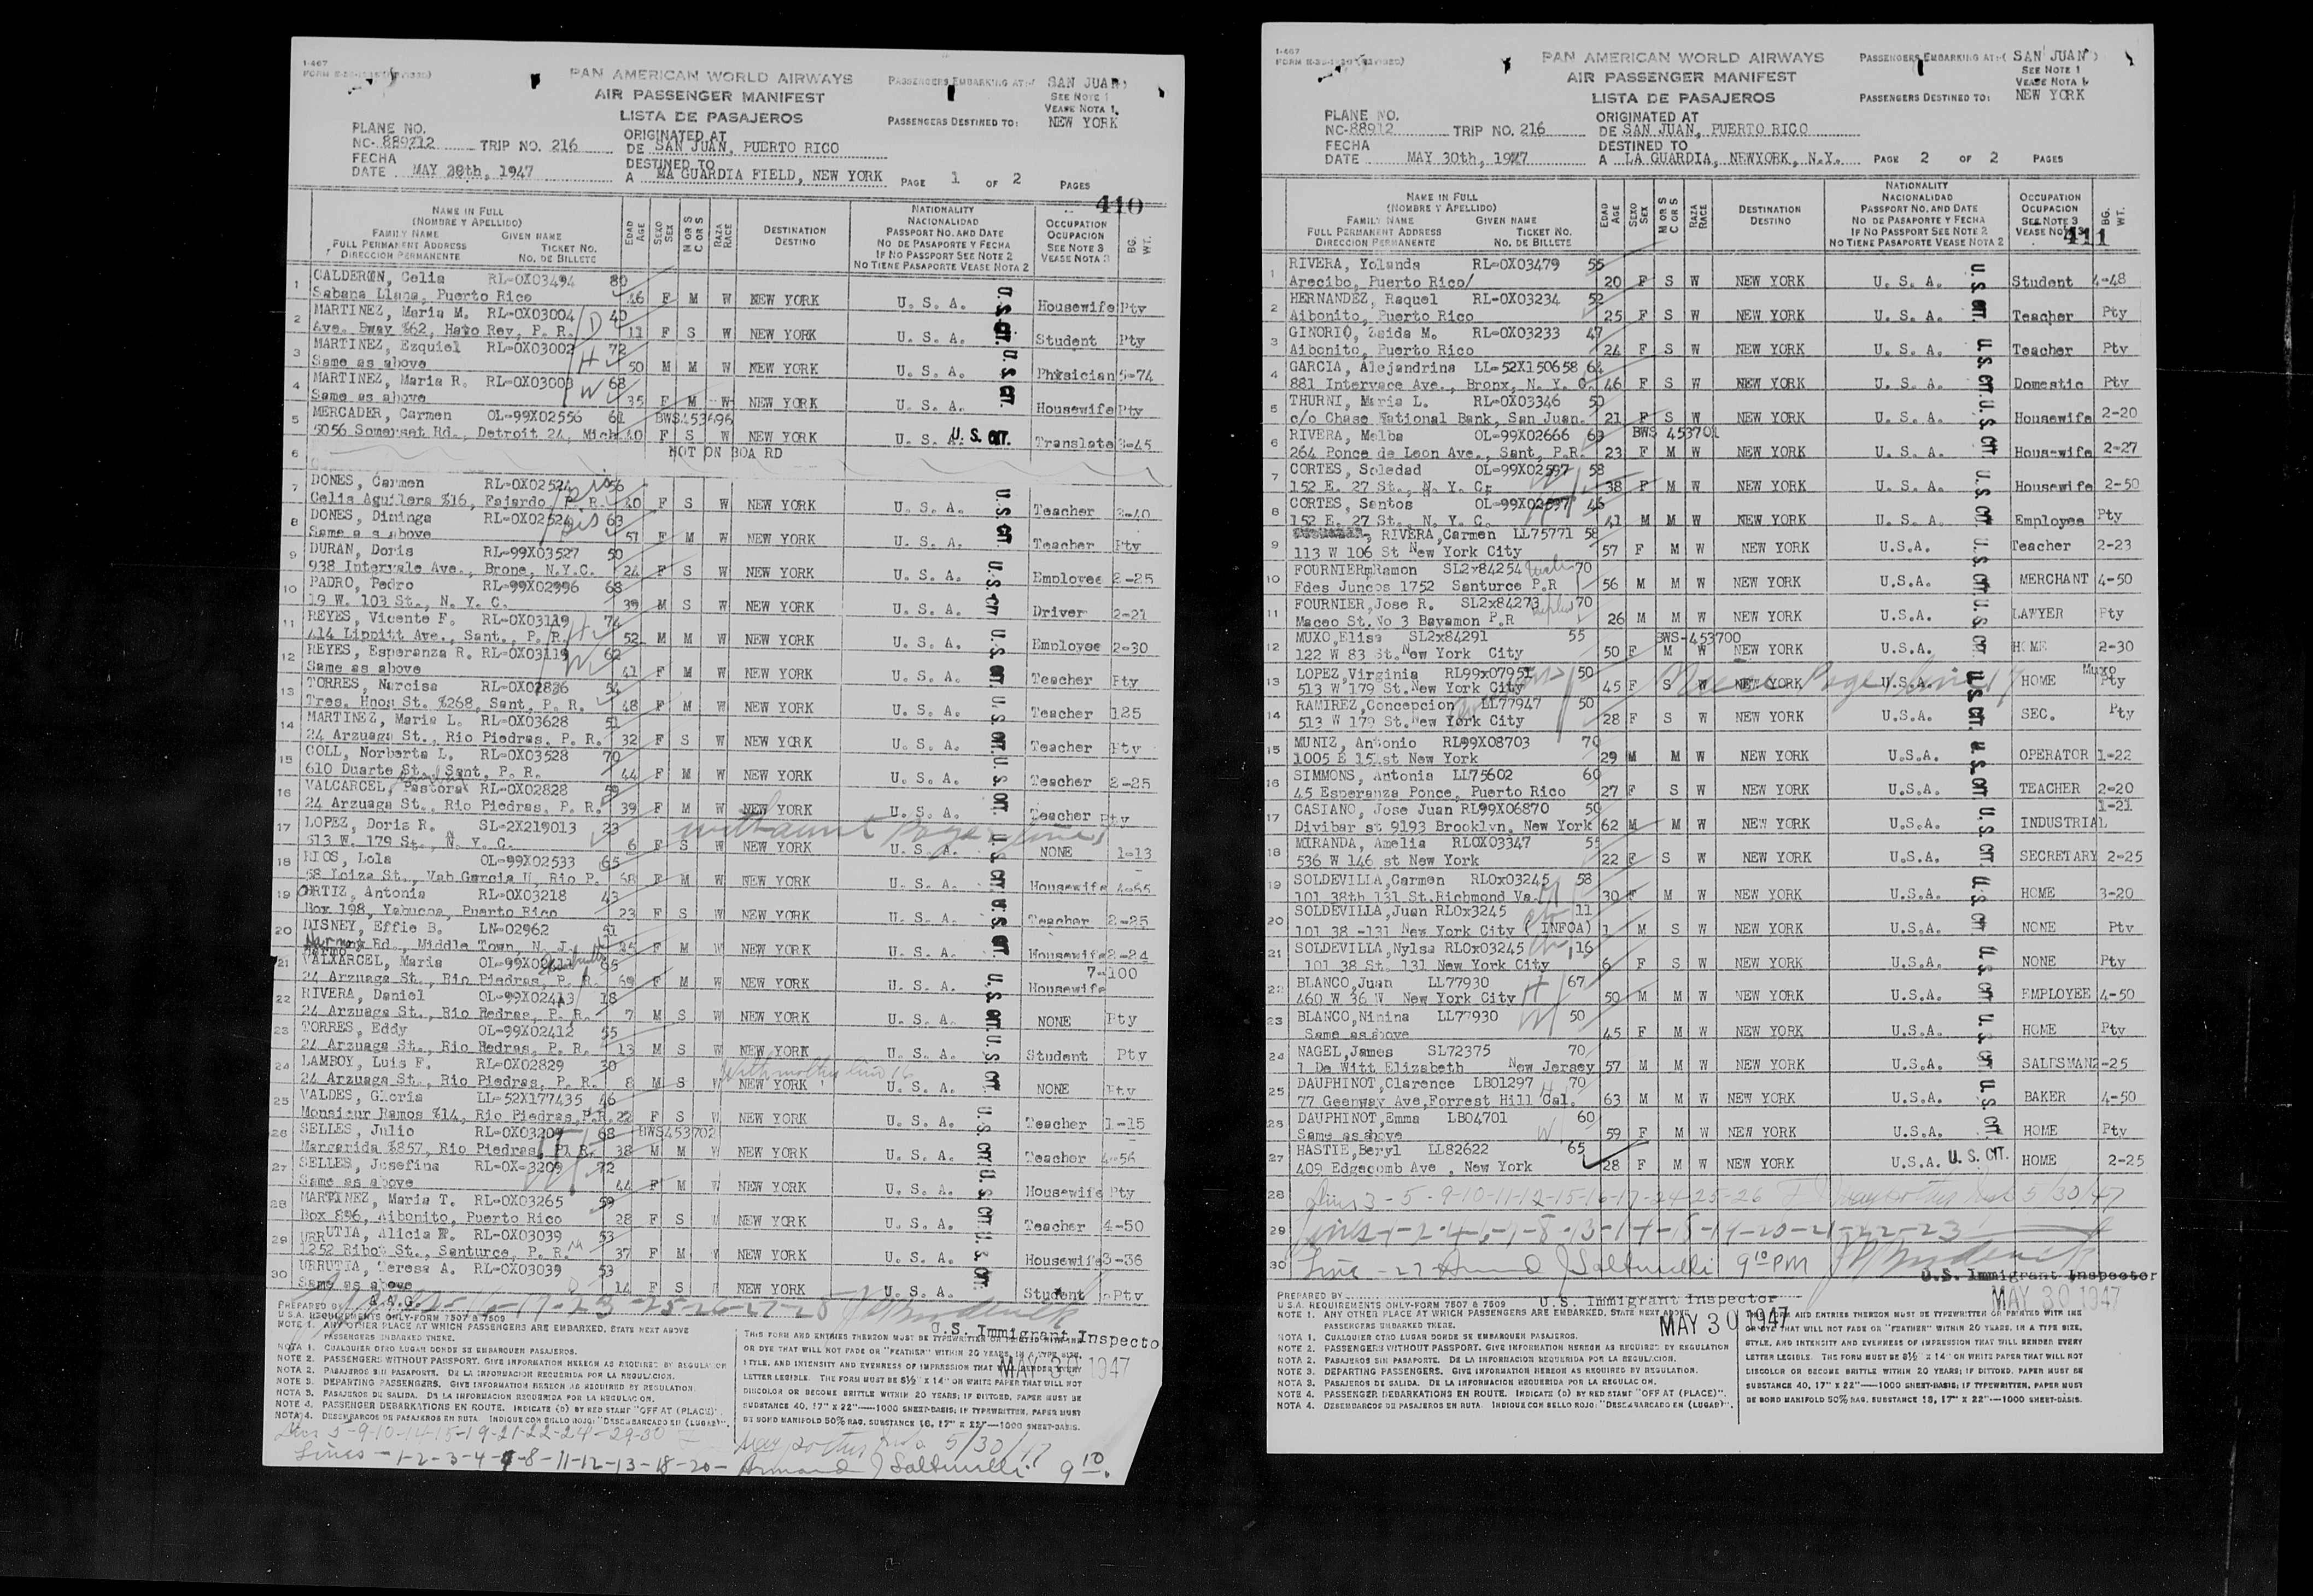 I-467
PAN AMERICAN WORLD AIRWAYS
AIR PASSENGER MANIFEST
LISTA DE PASAJEROS
PASSENGERS EMBARKING AT: SAN JUAN
SEE NOTE 1
VEASE NOTA 1
PASSENGERS DESTINED TO: NEW YORK
PLANE NO.
NC- 889212 TRIP NO. 216
ORIGINATED AT
DE SAN JUAN, PUERTO RICO
FECHA
DATE MAY 30th, 1947
DESTINED TO
A MA GUARDIA FIELD, NEW YORK PAGE 1 OF 2 PAGES
410
NAME IN FULL
(NOMBRE Y APELLIDO)
FAMILY NAME GIVEN NAME
FULL PERMANENT ADDRESS TICKET NO.
DIRECCION PERMANENTE NO. DE BILLETE
EDAD AGE
SEXO SEX
M OR S C OR S
RAZA RACE
DESTINATION
DESTINO
NATIONALITY
NACIONALIDAD
PASSPORT NO. AND DATE
NO DE PASAPORTE Y FECHA
IF NO PASSPORT SEE NOTE 2
NO TIENE PASAPORTE VEASE NOTA 2
OCCUPATION
OCUPACION
SEE NOTE 3
VEASE NOTA 3
BG. WT.
1 CALDERON, Celia RL-OX03494 80
Sabana Llana, Puerto Rico 46 F M W NEW YORK U. S. A. Housewife Pty
2 MARTINEZ, Maria M. RL-OX03004 40
Ave. Bway %62, Hato Rey, P. R. 11 F S W NEW YORK U. S. A. Student Pty
3 MARTINEZ, Ezquiel RL-OX03002 72
Same as above 50 M M W NEW YORK U. S. A. Physician 5-74
4 MARTINEZ, Maria R. RL-OX03003 68
Same as above 35 F M W NEW YORK U. S. A. Housewife Pty
5 MERCADER, Carmen OL-99X02556 61 BWS453696
5056 Somerset Rd., Detroit 24, Mich 40 F S W NEW YORK U. S. A. U. S. CIT. Translate 3-45
6 NOT ON BOARD
7 DONES, Carmen RL-OX02524 56
Celis Aguilera %16, Fajardo, P. R. 40 F S W NEW YORK U. S. A. Teacher 3-40
8 DONES, Dininga RL-OX02524 63
Same a s above 51 F M W NEW YORK U. S. A. Teacher Pty
9 DURAN, Doris RL-99X03527 50
938 Intervale Ave., Brone, N.Y.C. 24 F S W NEW YORK U. S. A. Employee 2-25
10 PADRO, Pedro RL-99X02996 68
19 W. 103 St., N. Y. C. 39 M S W NEW YORK U. S. A. Driver 2-21
11 REYES, Vicente F. RL-OX03119 74
414 Lippitt Ave., Sant., P. R. 52 M M W NEW YORK U. S. A. Employee 2-30
12 REYES, Esperanza R. RL-OX03119 62
Same as above 41 F M W NEW YORK U. S. A. Teacher Pty
13 TORRES, Narcisa RL-OX02836 54
Tres. Hnos St. %268, Sant, P. R. 48 F M W NEW YORK U. S. A. Teacher 125
14 MARTINEZ, Maria L. RL-OX03628 51
24 Arzuaga St., Rio Piedras, P. R. 32 F S W NEW YORK U. S. A. Teacher Pty
15 COLL, Norberta L. RL-OX03528 70
610 Duarte St., Sant, P. R. 44 F M W NEW YORK U. S. A. Teacher 2-25
16 VALCARCEL, Pastora RL-OX02828 59
24 Arzuaga St., Rio Piedras, P. R. 39 F M W NEW YORK U. S. A. Teacher Pty
17 LOPEZ, Doris R. SL-2X219013 23
513 W. 179 St., N. Y. C. 6 F S W NEW YORK U. S. A. NONE 1-13
18 RIOS, Lola OL-99X02533 65
58 Loiza St., Vab Garcia U, Rio P. 68 F M W NEW YORK U. S. A. Housewife 4-65
19 ORTIZ, Antonia RL-OX03218 43
Box 198, Yabucoa, Puerto Rico 23 F S W NEW YORK U. S. A. Teacher 2-25
20 DISNEY, Effie B. LN-02962 51
Rd., Middle Town, N. J. F M W NEW YORK U. S. A. Housewife 2-24
21 VALXARCEL, Maria 65
24 Arzuaga St., Rio Piedras, P. R. 69 F M W NEW YORK U. S. A. Housewife 7-100
22 RIVERA, Daniel OL-99X02413 18
24 Arzuaga St., Rio Redras, P. R. 7 M S W NEW YORK U. S. A. NONE Pty
23 TORRES, Eddy OL-99X02412 55
24 Arzuaga St., Rio Redras, P. R. 13 M S W NEW YORK U. S. A. Student Pty
24 LAMBOY, Luis F. RL-OX02829 30 with mother line 16
24 Arzuaga St., Rio Piedras, P. R. 8 M S W NEW YORK U. S. A. NONE Pty
25 VALDES, Gloria LL-52X177435 46
Monsieur Ramos %14, Rio Piedras, P.R. 22 F S W NEW YORK U. S. A. Teacher 1-15
26 SELLES, Julio RL-OX03209 68 BWS453702
Margarida %857, Rio Piedras, P. R. 38 M M W NEW YORK U. S. A. Teacher 4-56
27 SELLES, Josefina RL-OX-3209 72
Same as above 44 F M W NEW YORK U. S. A. Housewife Pty
28 MARTINEZ, Maria T. RL-OX03265 59
Box 896, Aibonito, Puerto Rico 28 F S W NEW YORK U. S. A. Teacher 4-50
29 URRUTIA, Alicia RL-OX03039 53
1252 Ribot St., Santurce, P. R. 37 F M W NEW YORK U. S. A. Housewife 3-36
30 URRUTIA, Teresa A. RL-OX03039 53
Same as above 14 F S NEW YORK U. S. A. Student Pty
PREPARED BY
U.S.A. REQUIREMENTS ONLY-FORM 7507 & 7509
U.S. Immigrant Inspecto
MAY 30 1947
NOTE 1. ANY OTHER PLACE AT WHICH PASSENGERS ARE EMBARKED, STATE NEXT ABOVE
PASSENGERS EMBARKED THERE.
NOTA 1. CUALQUIER OTRO LUGAR DONDE SE EMBARQUEN PASAJEROS.
NOTE 2. PASSENGERS WITHOUT PASSPORT. GIVE INFORMATION HEREON AS REQUIRED BY REGULATION
NOTA 2. PASAJEROS SIN PASAPORTE. DE LA INFORMACION REQUERIDA POR LA REGULACION.
NOTE 3. DEPARTING PASSENGERS. GIVE INFORMATION HEREON AS REQUIRED BY REGULATION.
NOTA 3. PASAJEROS DE SALIDA. DE LA INFORMACION REQUERIDA POR LA REGULACION.
NOTE 4. PASSENGER DEBARKATIONS EN ROUTE. INDICATE (D) BY RED STAMP "OFF AT (PLACE)".
NOTA 4. DESEMBARCOS DE PASAJEROS EN RUTA. INDIQUE CON SELLO ROJO: "DESEMBARCADO EN (LUGAR)".
THIS FORM AND ENTRIES THEREON MUST BE TYPEWRITTEN OR PRINTED WITH INK
OR DYE THAT WILL NOT FADE OR "FEATHER" WITHIN 20 YEARS, IN A TYPE SIZE,
STYLE, AND INTENSITY AND EVENNESS OF IMPRESSION THAT WILL RENDER EVERY
LETTER LEGIBLE. THE FORM MUST BE 8½ X 14" ON WHITE PAPER THAT WILL NOT
DISCOLOR OR BECOME BRITTLE WITHIN 20 YEARS; IF DITTOED, PAPER MUST BE
SUBSTANCE 40, 17" X 22"—1000 SHEET-BASIS; IF TYPEWRITTEN, PAPER MUST
BE BOND MANIFOLD 50% RAG, SUBSTANCE 18, 17" X 22"—1000 SHEET-BASIS.
5-9-10-14-15-19-21-22-24-29-30 5/30/47
Lines -1-2-3-4-7-8-11-12-13-18-20- Armand J Salturelli 9 10
I-467
PAN AMERICAN WORLD AIRWAYS
AIR PASSENGER MANIFEST
LISTA DE PASAJEROS
PASSENGERS EMBARKING AT: SAN JUAN
SEE NOTE 1
VEASE NOTA 1
PASSENGERS DESTINED TO: NEW YORK
PLANE NO.
NC-88912 TRIP NO. 216
ORIGINATED AT
DE SAN JUAN, PUERTO RICO
FECHA
DATE MAY 30th, 1947
DESTINED TO
A LA GUARDIA, NEWYORK, N.Y. PAGE 2 OF 2 PAGES
NAME IN FULL
(NOMBRE Y APELLIDO)
FAMILY NAME GIVEN NAME
FULL PERMANENT ADDRESS TICKET NO.
DIRECCION PERMANENTE NO. DE BILLETE
EDAD AGE
SEXO SEX
M OR S C OR S
RAZA RACE
DESTINATION
DESTINO
NATIONALITY
NACIONALIDAD
PASSPORT NO. AND DATE
NO DE PASAPORTE Y FECHA
IF NO PASSPORT SEE NOTE 2
NO TIENE PASAPORTE VEASE NOTA 2
OCCUPATION
OCUPACION
SEE NOTE 3
VEASE NOTA 3
BG. WT.
411
1 RIVERA, Yolanda RL-OX03479 55
Arecibo, Puerto Rico/ 20 F S W NEW YORK U. S. A. Student 4-48
2 HERNANDEZ, Raquel RL-OX03234 52
Aibonito, Puerto Rico 25 F S W NEW YORK U. S. A. Teacher Pty
3 GINORIO, Zaida M. RL-OX03233 47
Aibonito, Puerto Rico 24 F S W NEW YORK U. S. A. Teacher Pty
4 GARCIA, Alejandrina LL-52X150658 64
881 Intervace Ave., Bronx, N. Y. C. 46 F S W NEW YORK U. S. A. Domestic Pty
5 THURNI, Maria L. RL-OX03346 50
c/o Chase National Bank, San Juan. 21 F S W NEW YORK U. S. A. Housewife 2-20
6 RIVERA, Melba OL-99X02666 63 BWS 453701
264 Ponce de Leon Ave., Sant, P.R. 23 F M W NEW YORK U. S. A. Housewife 2-27
7 CORTES, Soledad OL-99X02597 58
152 E. 27 St., N. Y. C. 38 F M W NEW YORK U. S. A. Housewife 2-50
8 CORTES, Santos OL-99X02597 46
152 E. 27 St., N. Y. C. 41 M M W NEW YORK U. S. A. Employee Pty
9 RIVERA,Carmen LL75771 58
113 W 106 St New York City 57 F M W NEW YORK U.S.A. Teacher 2-23
10 FOURNIER,Ramon SL2x84254 70
Fdes Juncos 1752 Santurce P.R 56 M M W NEW YORK U.S.A. MERCHANT 4-50
11 FOURNIER,Jose R. SL2x84273 70
Maceo St.No 3 Bayamon P.R 26 M M W NEW YORK U.S.A. LAWYER Pty
12 MUXO,Elisa SL2x84291 55 BWS-453700
122 W 83 St.New York City 50 F M W NEW YORK U.S.A. HOME 2-30
13 LOPEZ,Virginia RL99x07951 50 Muxo
513 W 179 St.New York City 45 F S W NEW YORK U.S.A. HOME Pty
14 RAMIREZ,Concepcion LL77947 50
513 W 179 St.New York City 28 F S W NEW YORK U.S.A. SEC. Pty
15 MUNIZ, Antonio RL99X08703 70
1005 E 151st New York 29 M M W NEW YORK U.S.A. OPERATOR 1-22
16 SIMMONS, Antonia LL75602 60
45 Esperanza Ponce, Puerto Rico 27 F S W NEW YORK U.S.A. TEACHER 2-20
17 CASIANO, Jose Juan RL99X06870 50
Divibar st 9193 Brooklyn, New York 62 M M W NEW YORK U.S.A. INDUSTRIAL 1-21
18 MIRANDA, Amelia RLOX03347 55
536 W 146 st New York 22 F S W NEW YORK U.S.A. SECRETARY 2-25
19 SOLDEVILLA,Carmen RLOx03245 58
101 38th 131 St.Richmond Va. 30 F M W NEW YORK U.S.A. HOME 3-20
20 SOLDEVILLA,Juan RLOx3245 11
101 38 -131 New York City (INFOA) 1 M S W NEW YORK U.S.A. NONE Pty
21 SOLDEVILLA,Nylsa RLOx03245 16
101 38 St. 131 New York City 6 F S W NEW YORK U.S.A. NONE Pty
22 BLANCO,Juan LL77930 67
460 W 36 W New York City 50 M M W NEW YORK U.S.A. EMPLOYEE 4-50
23 BLANCO,Ninina LL77930 50
Same as above 45 F M W NEW YORK U.S.A. HOME Pty
24 NAGEL,James SL72375 70
1 De Witt Elizabeth New Jersey 57 M M W NEW YORK U.S.A. SALESMAN 2-25
25 DAUPHINOT,Clarence LB01297 70
77 Geenway Ave,Forrest Hill Cal. 63 M M W NEW YORK U.S.A. BAKER 4-50
26 DAUPHINOT,Emma LB04701 60
Same as above 59 F M W NEW YORK U.S.A. HOME Pty
27 HASTIE,Beryl LL82622 65
409 Edgecomb Ave , New York 28 F M W NEW YORK U.S.A. U. S. CIT. HOME 2-25
28 Lines 3-5-9-10-11-12-15-16-17-24-25-26 5/30/47
29 Lines
30 Line -27 Armand J Salturelli 9 10 PM
U.S. Immigrant Inspector
PREPARED BY
U.S.A. REQUIREMENTS ONLY-FORM 7507 & 7509 U.S. Immigrant Inspector
MAY 30 1947
MAY 30 1947
NOTE 1. ANY OTHER PLACE AT WHICH PASSENGERS ARE EMBARKED, STATE NEXT ABOVE
PASSENGERS EMBARKED THERE.
NOTA 1. CUALQUIER OTRO LUGAR DONDE SE EMBARQUEN PASAJEROS.
NOTE 2. PASSENGERS WITHOUT PASSPORT. GIVE INFORMATION HEREON AS REQUIRED BY REGULATION
NOTA 2. PASAJEROS SIN PASAPORTE. DE LA INFORMACION REQUERIDA POR LA REGULACION.
NOTE 3. DEPARTING PASSENGERS. GIVE INFORMATION HEREON AS REQUIRED BY REGULATION.
NOTA 3. PASAJEROS DE SALIDA. DE LA INFORMACION REQUERIDA POR LA REGULACION.
NOTE 4. PASSENGER DEBARKATIONS EN ROUTE. INDICATE (D) BY RED STAMP "OFF AT (PLACE)".
NOTA 4. DESEMBARCOS DE PASAJEROS EN RUTA. INDIQUE CON SELLO ROJO: "DESEMBARCADO EN (LUGAR)".
FORM AND ENTRIES THEREON MUST BE TYPEWRITTEN OR PRINTED WITH INK
OR DYE THAT WILL NOT FADE OR "FEATHER" WITHIN 20 YEARS, IN A TYPE SIZE,
STYLE, AND INTENSITY AND EVENNESS OF IMPRESSION THAT WILL RENDER EVERY
LETTER LEGIBLE. THE FORM MUST BE 8½ X 14" ON WHITE PAPER THAT WILL NOT
DISCOLOR OR BECOME BRITTLE WITHIN 20 YEARS; IF DITTOED, PAPER MUST BE
SUBSTANCE 40, 17" X 22"—1000 SHEET-BASIS; IF TYPEWRITTEN, PAPER MUST
BE BOND MANIFOLD 50% RAG, SUBSTANCE 18, 17" X 22"—1000 SHEET-BASIS.